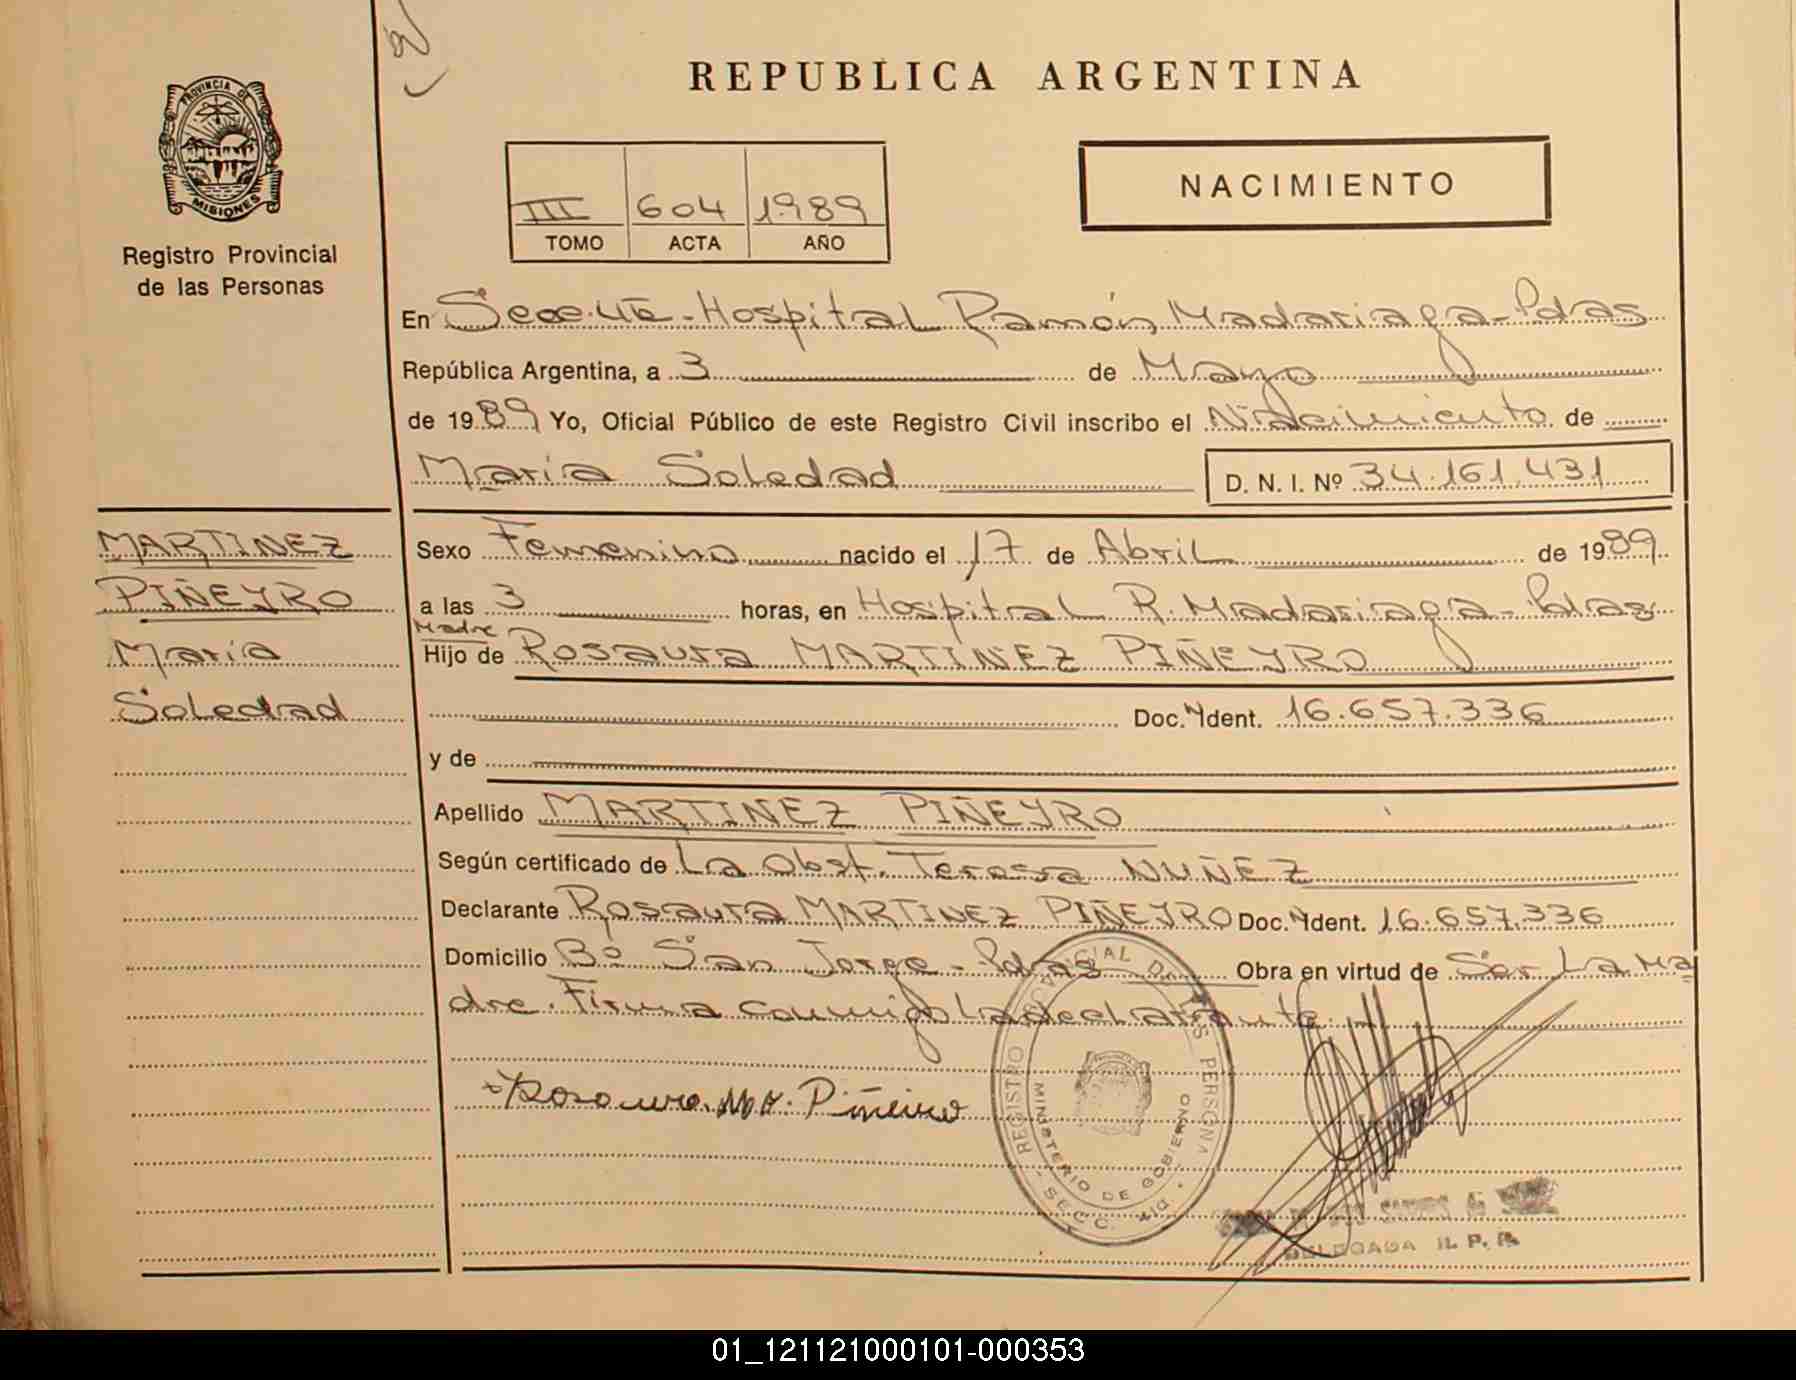 REPUBLICA ARGENTINA
PROVINCIA DE
MISIONES
Registro Provincial
de las Personas
III 604 1989
TOMO ACTA AÑO
NACIMIENTO
En Hospital Ramón Madariaga-Pdas
República Argentina, a 3 de Mayo
de 1989 Yo, Oficial Público de este Registro Civil inscribo el Nacimiento de
María Soledad D. N. I. Nº 34.161.431
MARTINEZ
PIÑEYRO
María
Soledad
Sexo Femenino nacido el 17 de Abril de 1989
a las 3 horas, en Hospital R. Madariaga-Pdas
Madre
Hijo de Rosaura MARTINEZ PIÑEYRO
Doc. Ident. 16.657.336
y de
Apellido MARTINEZ PIÑEYRO
Según certificado de La Obst. Teresa NUÑEZ
Declarante Rosaura MARTINEZ PIÑEYRO Doc. Ident. 16.657.336
Domicilio Bº San Jorge - Pdas Obra en virtud de Ser La Ma
dre. Firma conmigo La declarante.
Rosaura Piñeiro
REGISTRO PROVINCIAL DE LAS PERSONAS
MINISTERIO DE GOBIERNO
SECC.
DELEGADA R. P. P.
01_121121000101-000353